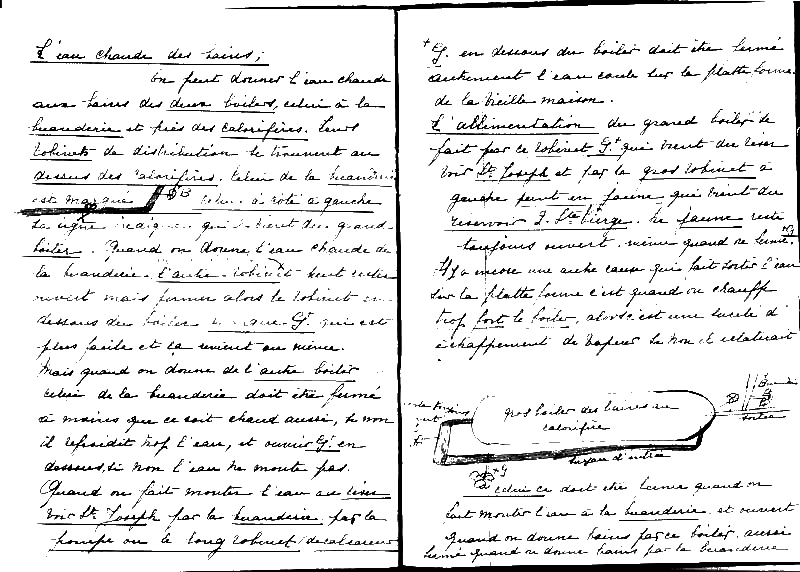 L'eau chaude des bains;
On peut donner l'eau chaude
aux bains des deux boilers, celui à la
buanderie et près des calorifères. Leurs
robinets de distribution se trouvent au
dessus des calorifères. Celui de la buanderie
est marqué B celui à côté à gauche
la ligne indique qui vient du grand
boiler. Quand on donne l'eau chaude de
la buanderie, l'autre robinet peut rester
ouvert mais fermer alors le robinet en
dessous du boiler marqué G+ qui est
plus facile et ça revient au même.
Mais quand on donne de l'autre boiler
celui de la buanderie doit être fermé
à moins que ce soit chaud aussi, si non
il refroidit trop l'eau, et ouvrir G+ en
dessous, si non l'eau ne monte pas.
Quand on fait monter l'eau au réser
voir St. Joseph par la buanderie, par la
pompe ou le long robinet
+G. en dessous du boiler doit être fermé
autrement l'eau coule sur la platte forme
de la vieille maison.
L'allimentation du grand boiler se
fait par ce robinet G+ qui vient du réser
voir St. Joseph et par le gros robinet à
gauche peint en jaune qui vient du
réservoir Ste Vierge. Le jaune reste
toujours ouvert même quand on ferme +G
Il y a encore une autre cause qui fait sortir l'eau
sur la platte forme c'est quand on chauffe
trop fort le boiler, alors c'est une sureté d'
échappement de vapeur si non il éclaterait
gros boiler des bains au
calorifère
sortie
tuyau d'entrée
+G
celui ce doit être fermé quand on
fait monter l'eau à la buanderie et ouvert
quand on donne bains par ce boiler, aussi
fermé quand on donne bains par la buanderie